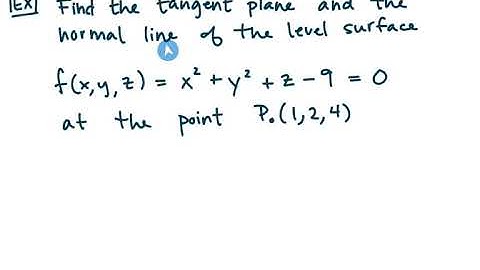 [EX] Find the tangent plane and the
normal line of the level surface
f(x,y,z) = x² + y² + z - 9 = 0
at the point P₀(1,2,4)